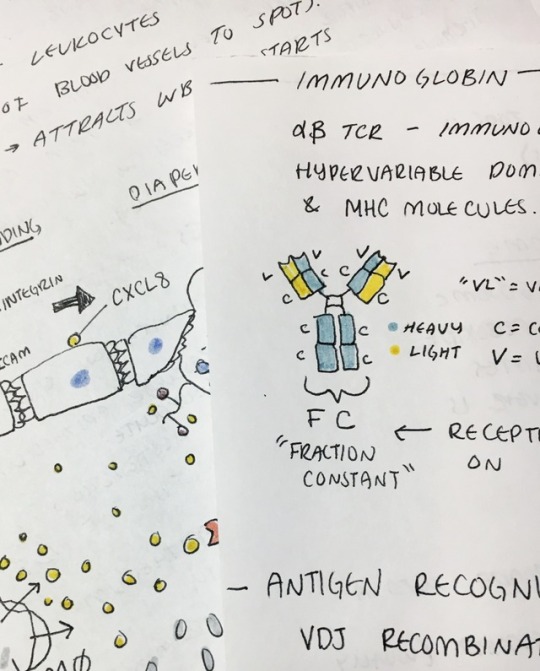 LEUKOCYTES
OF BLOOD VESSELS TO SPOT).
→ ATTRACTS WB
STARTS
DIAPE
INTEGRIN
CXCL8
ICAM
IMMUNO GLOBIN
αβ TCR - IMMUNO
HYPERVARIABLE DOM
& MHC MOLECULES.
V V C C V V
C C
"VL" = V
C C
C C
HEAVY
LIGHT
C = C
V =
FC
"FRACTION
CONSTANT"
← RECEPT
ON
- ANTIGEN RECOGNI
VDJ RECOMBINA